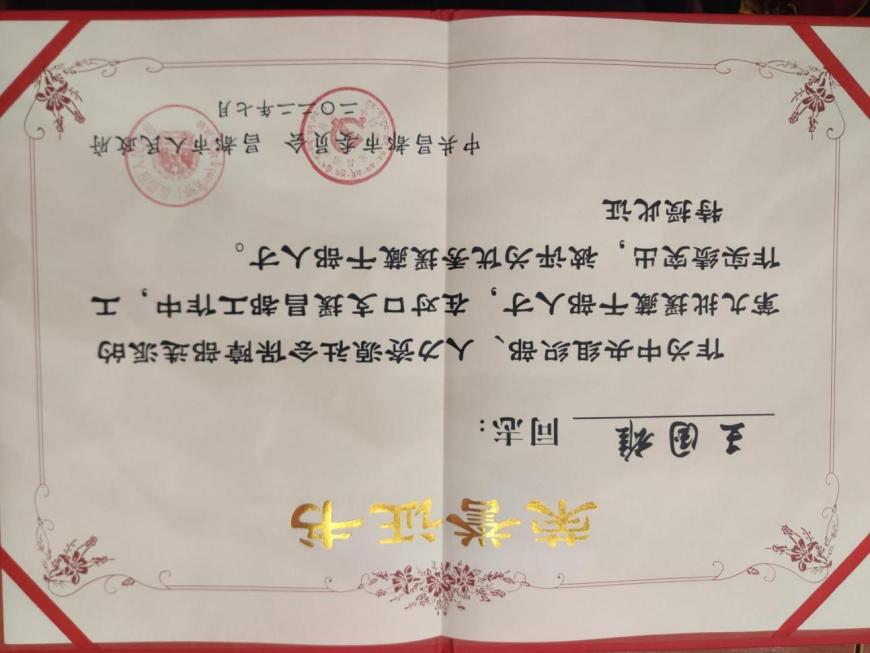 荣誉证书
王国雄 同志：
作为中央组织部、人力资源社会保障部选派的
第九批援藏干部人才，在对口支援昌都工作中，工
作实绩突出，被评为优秀援藏干部人才。
特授此证
中共昌都市委员会 昌都市人民政府
二〇二二年七月